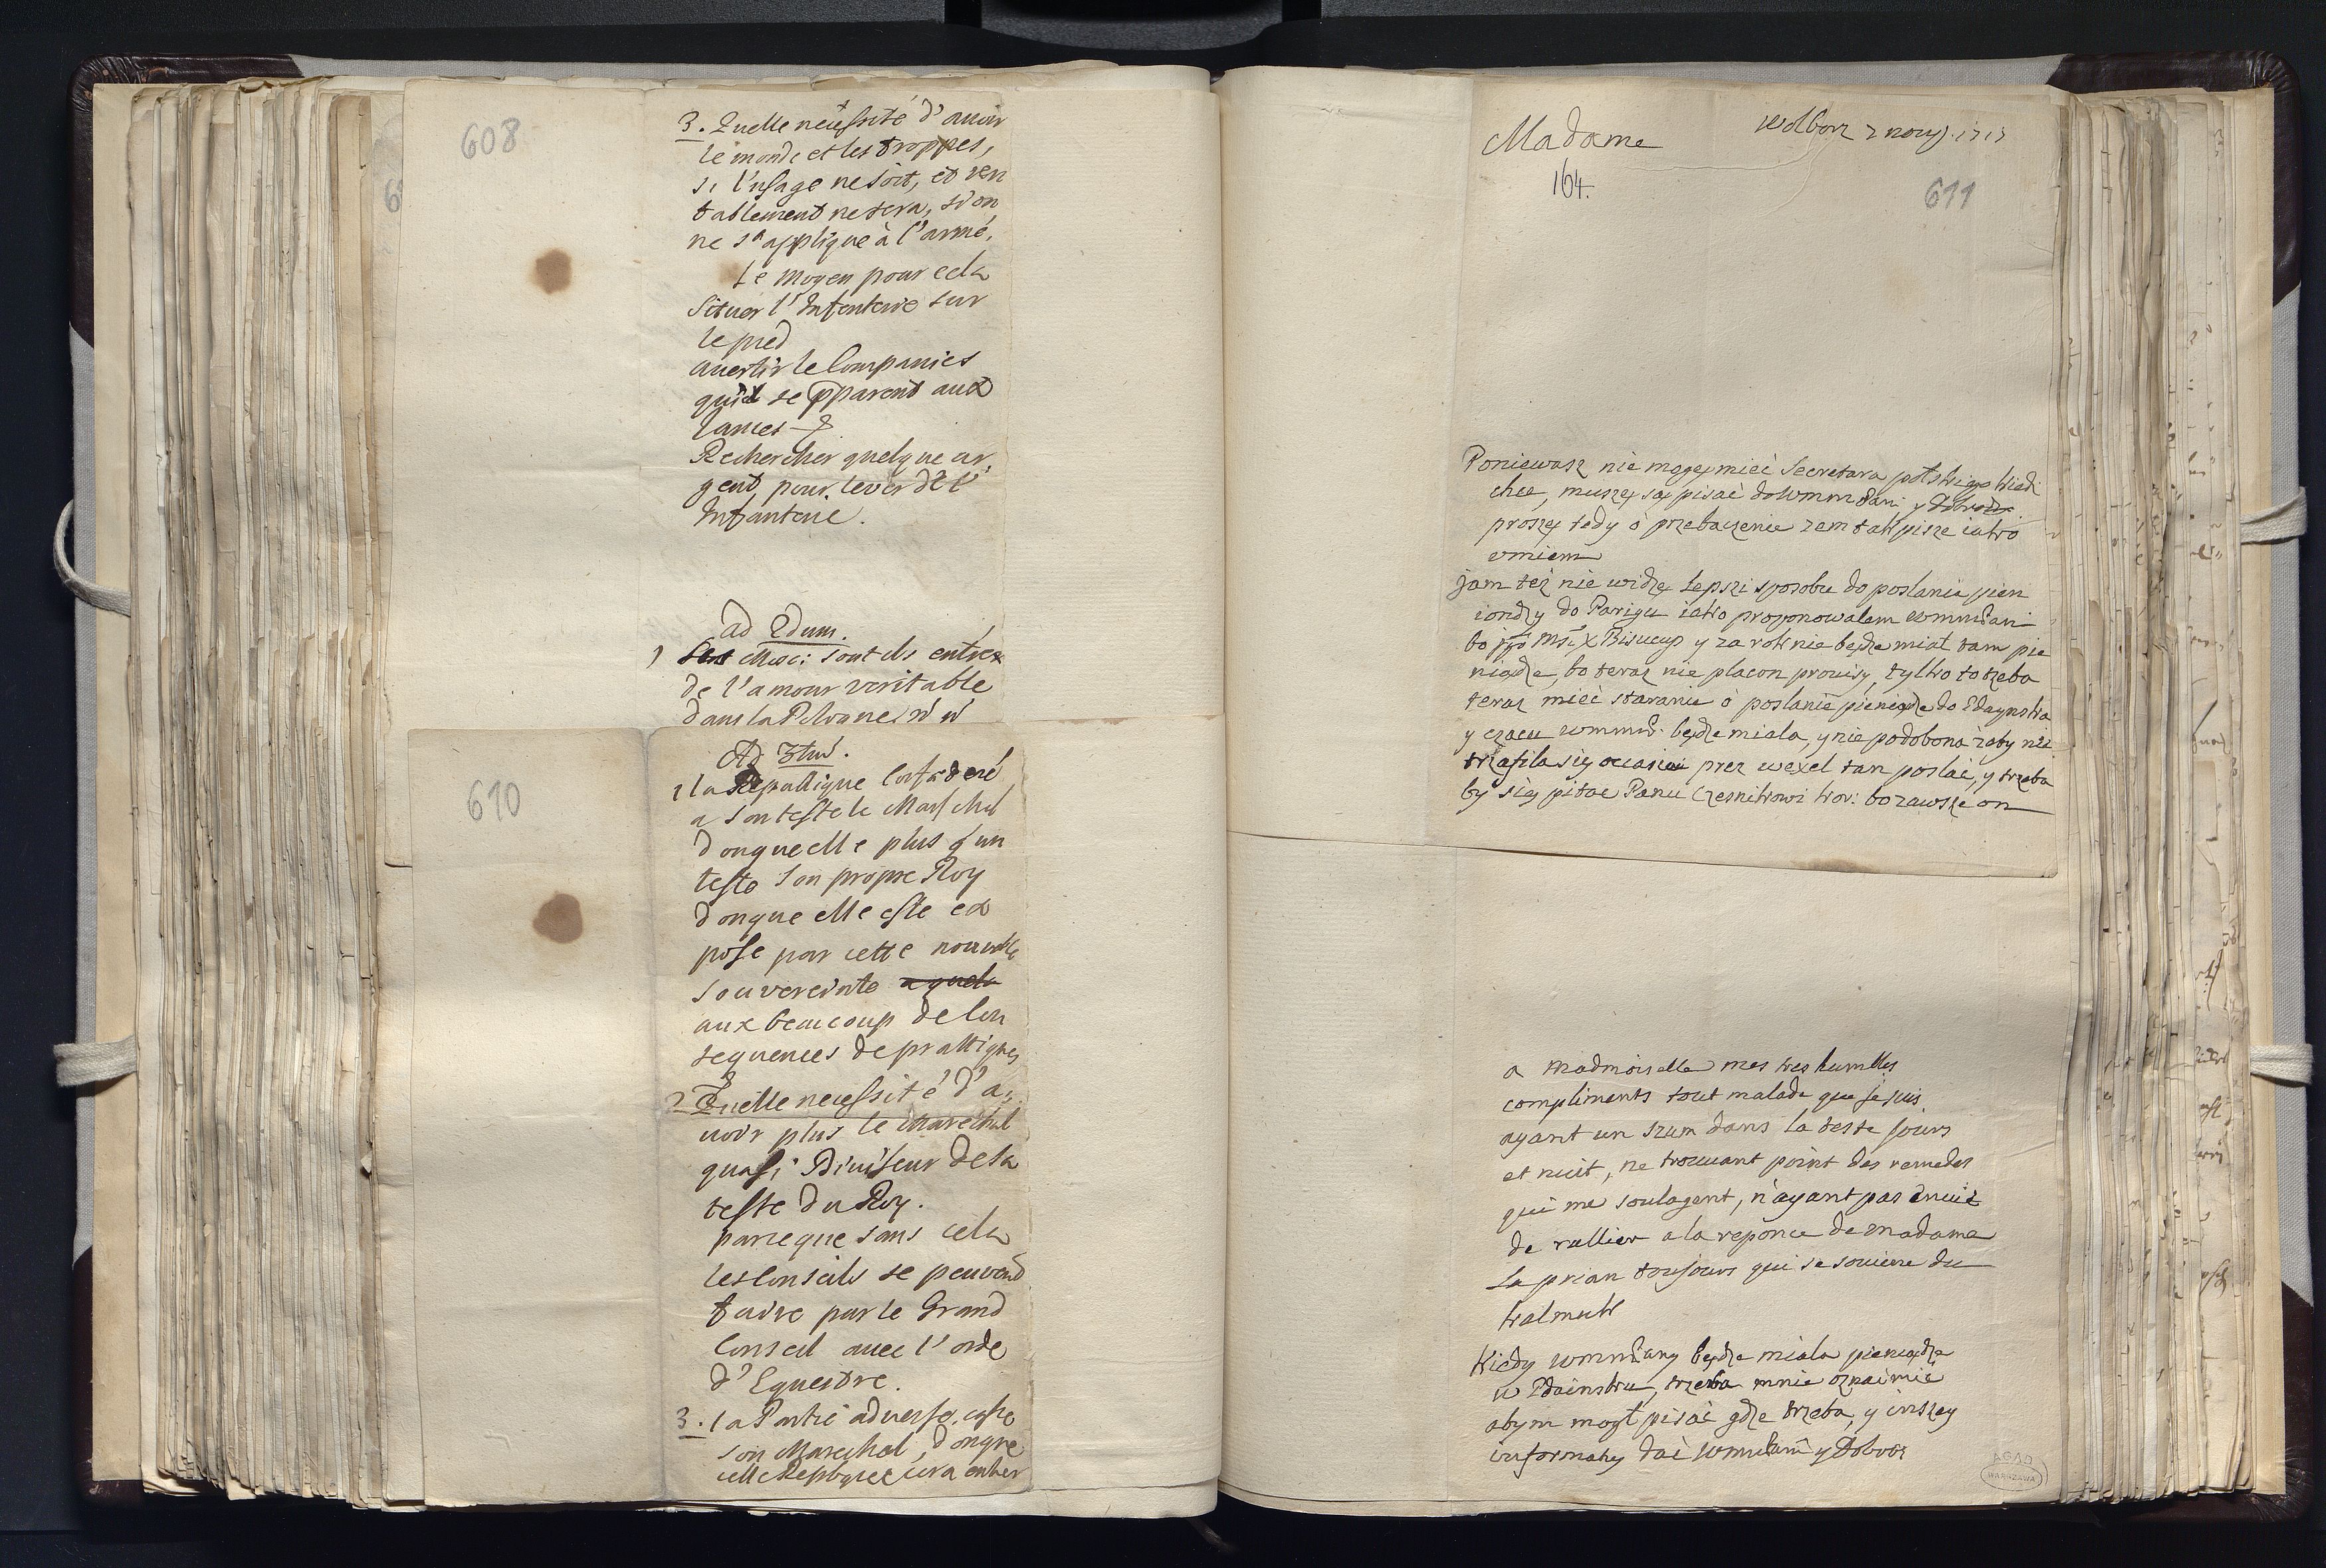 608
3. Quelle necessité d'auoir
le monde et les troppes,
si l'usage ne soit, et veri
tablement ne sera, si on
ne s'applique à l'armé.
Le moyen pour cela
Situer l'Infenterie sur
le pied
auertir le Companies
qu'il se pparent aux
lances
Rechercher quelque ar,
gent, pour lever de l'
Infanterie.
ad 2dum.
1 sont ils entrez
de l'amour veritable
dans la
610
Ad 3tiu.
1 la Republique Confederé
a son teste le Marschal
donque elle plus q'un
teste son propre Roy
donque elle este ex
pose par cette nouvelle
souvereinte
aux beaucoup de Con
sequences de prattiques
2 Quelle necessité d'a,
uoir plus le Marechal
quasi Diuiseur de la
teste du Roy.
parceque sans cela
les Conseils se peuvend
faire par le Grand
Conseil avec l'orde
d'Equestre.
3. la Partie adverse, casse
son Marechal, donque
cette sera entier
Madame
Wolborz 2
164.
611
Poniewasz nie mogę mieć Secretara polskiego kiedi
chce, muszę są pisać do Wmm Pani y
proszę tedy o przebaczenie zem tak pisze iako
vmiem
jam też nie widzę lepszi sposobu do poslania pien
iondzy do Parigu iako proponowalem Wmm Pani
bo jego Mść X Biscup y za rok nie będze mial tam pie
niądze, bo teraz nie placon prowizy, tylko to trzeba
teraz mieć staranie o poslanie pieniądze do Gdaynska
y czacu Wmm: będze miala, y nie podobona żaby nie
trzafila się occasia prez wexel tan poslać, y trzeba
by się pitac Panu Czesnikowi kor: bo zawsze on
a Madmoiselle mes tres humbles
compliments tout malade que je suis
ayant un szum dans la teste jours
et nuit, ne trouuant point des remedes
qui me soulagent, n'ayant pas enuie
de rallier a la reponce de Madame
la prian toujours qui se souiene du
kalmuk
Kiedy Wmm Pany będze miala pieniądze
w Gdainsku, trzeba mnie oznaimic
abym mogl pisać gdze trzeba, y inszey
informaty dać Wmm Pani y Dobrod
AGAD
WARSZAWA